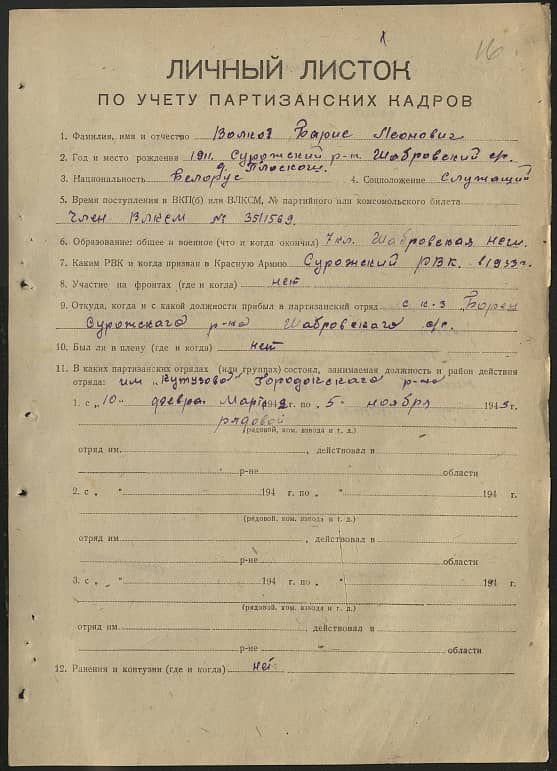 16
ЛИЧНЫЙ ЛИСТОК
ПО УЧЕТУ ПАРТИЗАНСКИХ КАДРОВ
1. Фамилия, имя и отчество Волков Барис Леонович
2. Год и место рождения 1911 Суражский р-н. Шабровский с/с.
д Плоскош.
3. Национальность Белорус 4. Соцположение Служащий
5. Время поступления в ВКП(б) или ВЛКСМ, № партийного или комсомольского билета
Член ВЛКСМ № 3511569
6. Образование: общее и военное (что и когда окончил) 7 кл. Шабровская
7. Каким РВК и когда призван в Красную Армию Сурожский РВК. в 1933 г.
8. Участие на фронтах (где и когда) нет
9. Откуда, когда и с какой должности прибыл в партизанский отряд с к-з "Борец
Сурожского р-на Шабровского с/с.
10. Был ли в плену (где и когда) нет
11. В каких партизанских отрядах (или группах) состоял, занимаемая должность и район действия
отряда: им "Кутузова" Городокского р-на
1. с „10" Марта 1942 г. по „5" ноября 1943 г.
рядовой
(рядовой, ком. взвода и т. д.)
отряд им. , действовал в
р-не области
2. с „ " 194 г. по „ " 194 г.
(рядовой, ком. взвода и т. д.)
отряд им. , действовал в
р-не области
3. с „ " 194 г. по „ " 194 г.
(рядовой, ком. взвода и т. д.)
отряд им. , действовал в
р-не " области
12. Ранения и контузии (где и когда) нет